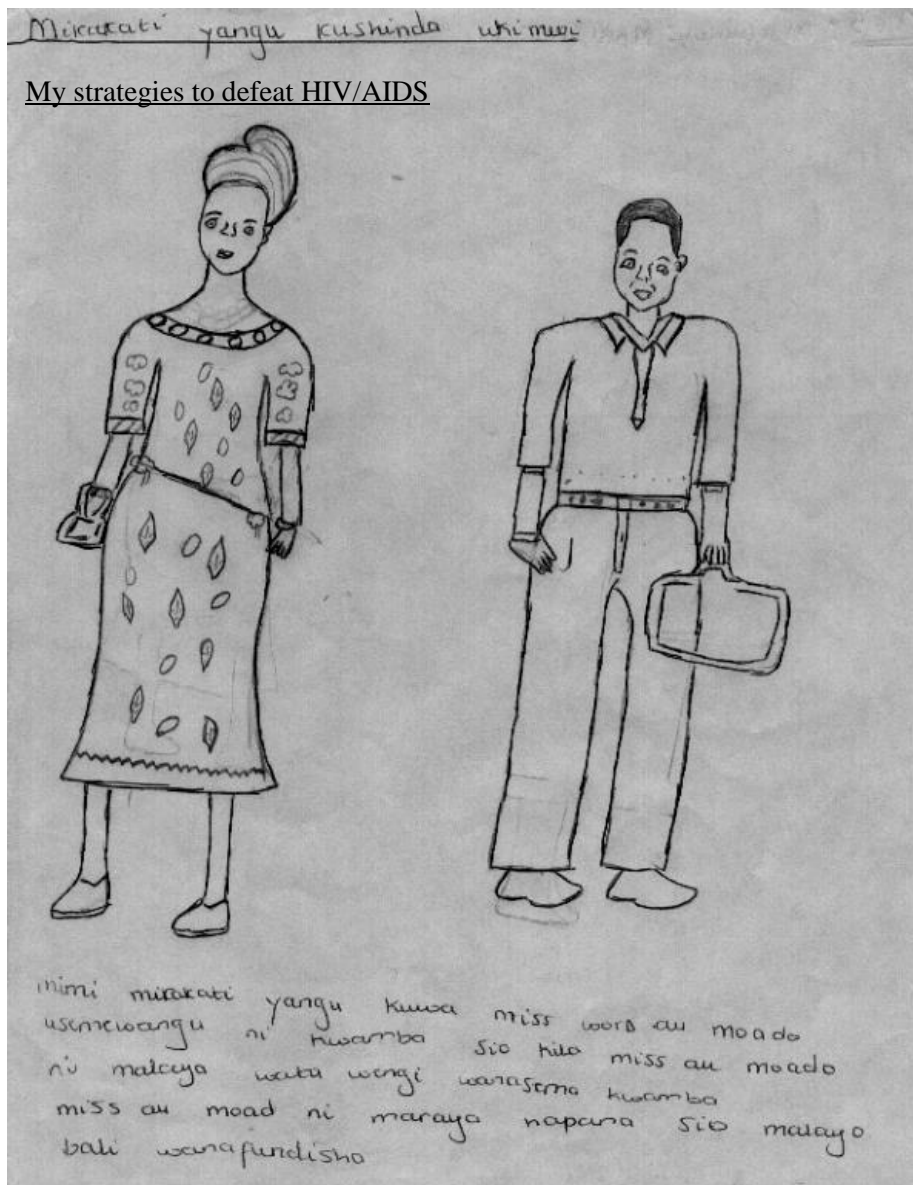 Mikakati yangu kushinda ukimwi
My strategies to defeat HIV/AIDS
mimi mikakati yangu kuwa miss word au moado
usemewangu ni kwamba sio kila miss au moado
ni malaya watu wengi wanasema kwamba
miss au moad ni maraya hapana sio malayo
bali wanafundisha